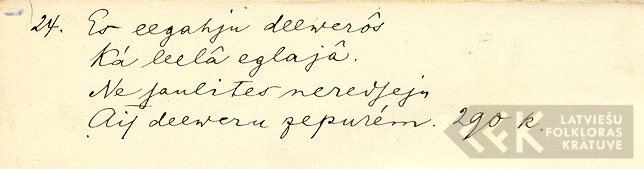 24. Es eegahju deewerôs
Kâ leelâ eglajâ.
Ne saulites neredseju
Ais deeweru zepurêm. 290 k.
LATVIEŠU
FOLKLORAS
KRĀTUVE